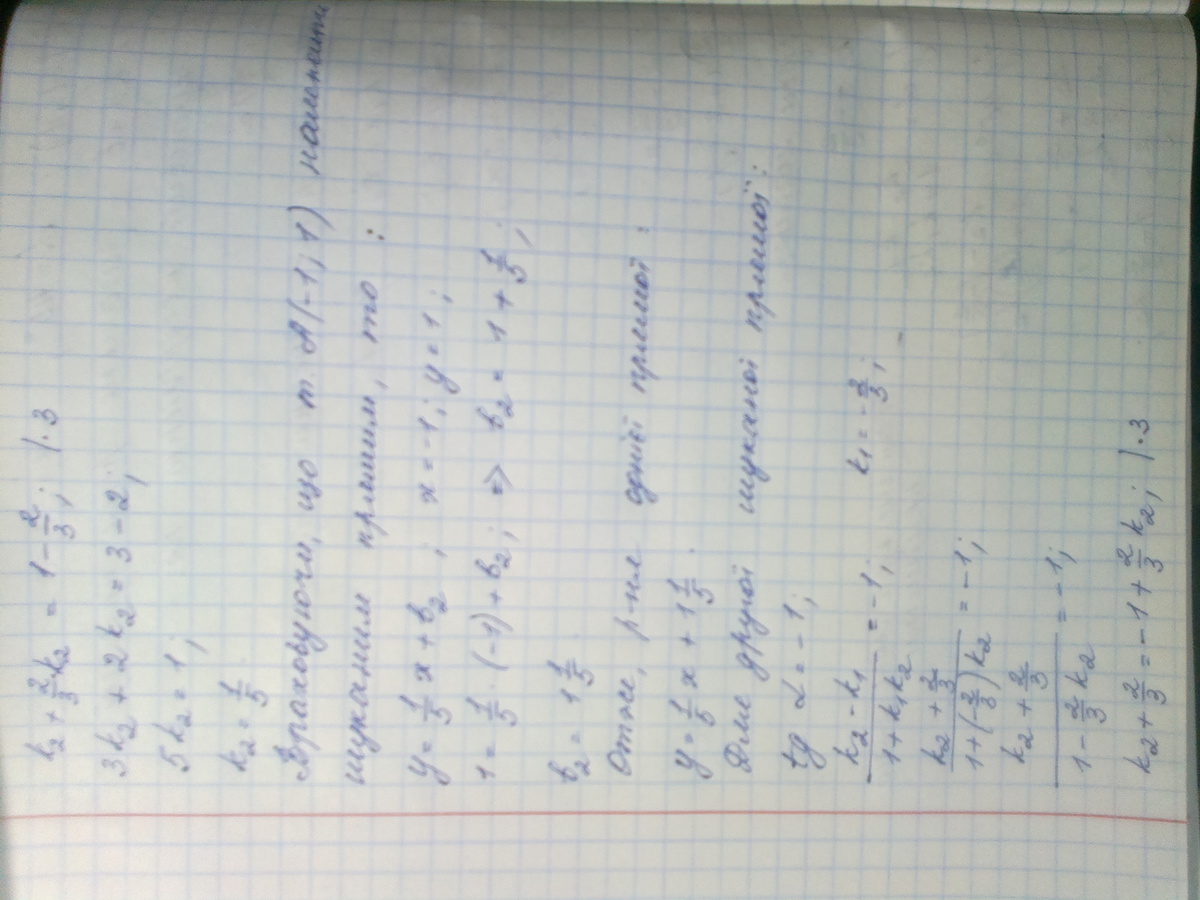 k₂ + 2/3 k₂ = 1 - 2/3; |·3
3k₂ + 2k₂ = 3 - 2;
5k₂ = 1;
k₂ = 1/5
Враховуючи, що т. A(-1; 1) належить
шуканим прямим, то :
y = 1/5 x + b₂; x = -1; y = 1;
1 = 1/5 · (-1) + b₂; => b₂ = 1 + 1/5;
b₂ = 1 1/5
Отже, р-ня однієї прямої :
y = 1/5 x + 1 1/5.
Для другої шуканої прямої :
tg α = -1;
(k₂ - k₁)/(1 + k₁k₂) = -1; k₁ = -2/3;
(k₂ + 2/3)/(1 + (-2/3)k₂) = -1;
(k₂ + 2/3)/(1 - 2/3 k₂) = -1;
k₂ + 2/3 = -1 + 2/3 k₂; |·3